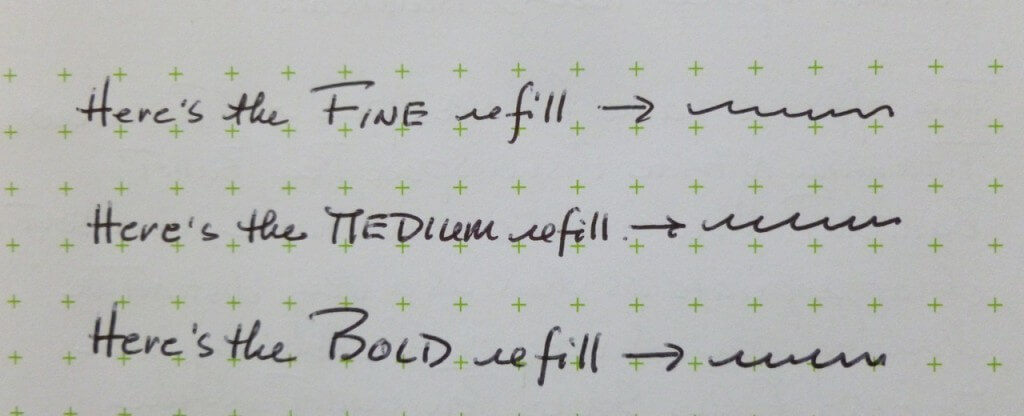 Here's the FINE refill →
Here's the MEDIUM refill. →
Here's the BOLD refill →